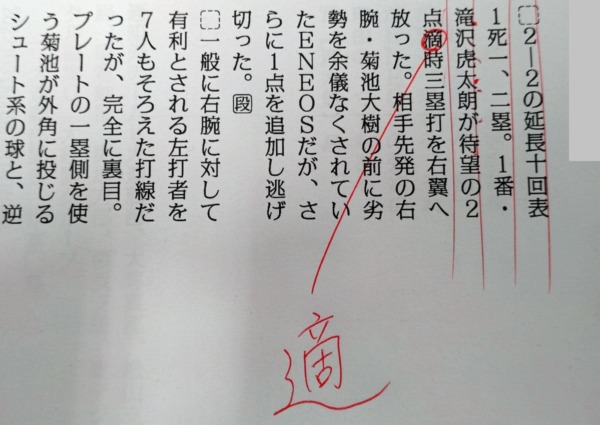 2—2の延長十回表
1死一、二塁。1番・
滝沢虎太朗が待望の2
点滴時三塁打を右翼へ
放った。相手先発の右
腕・菊池大樹の前に劣
勢を余儀なくされてい
たENEOSだが、さ
らに1点を追加し逃げ
切った。段
一般に右腕に対して
有利とされる左打者を
7人もそろえた打線だ
ったが、完全に裏目。
プレートの一塁側を使
う菊池が外角に投じる
シュート系の球と、逆
適